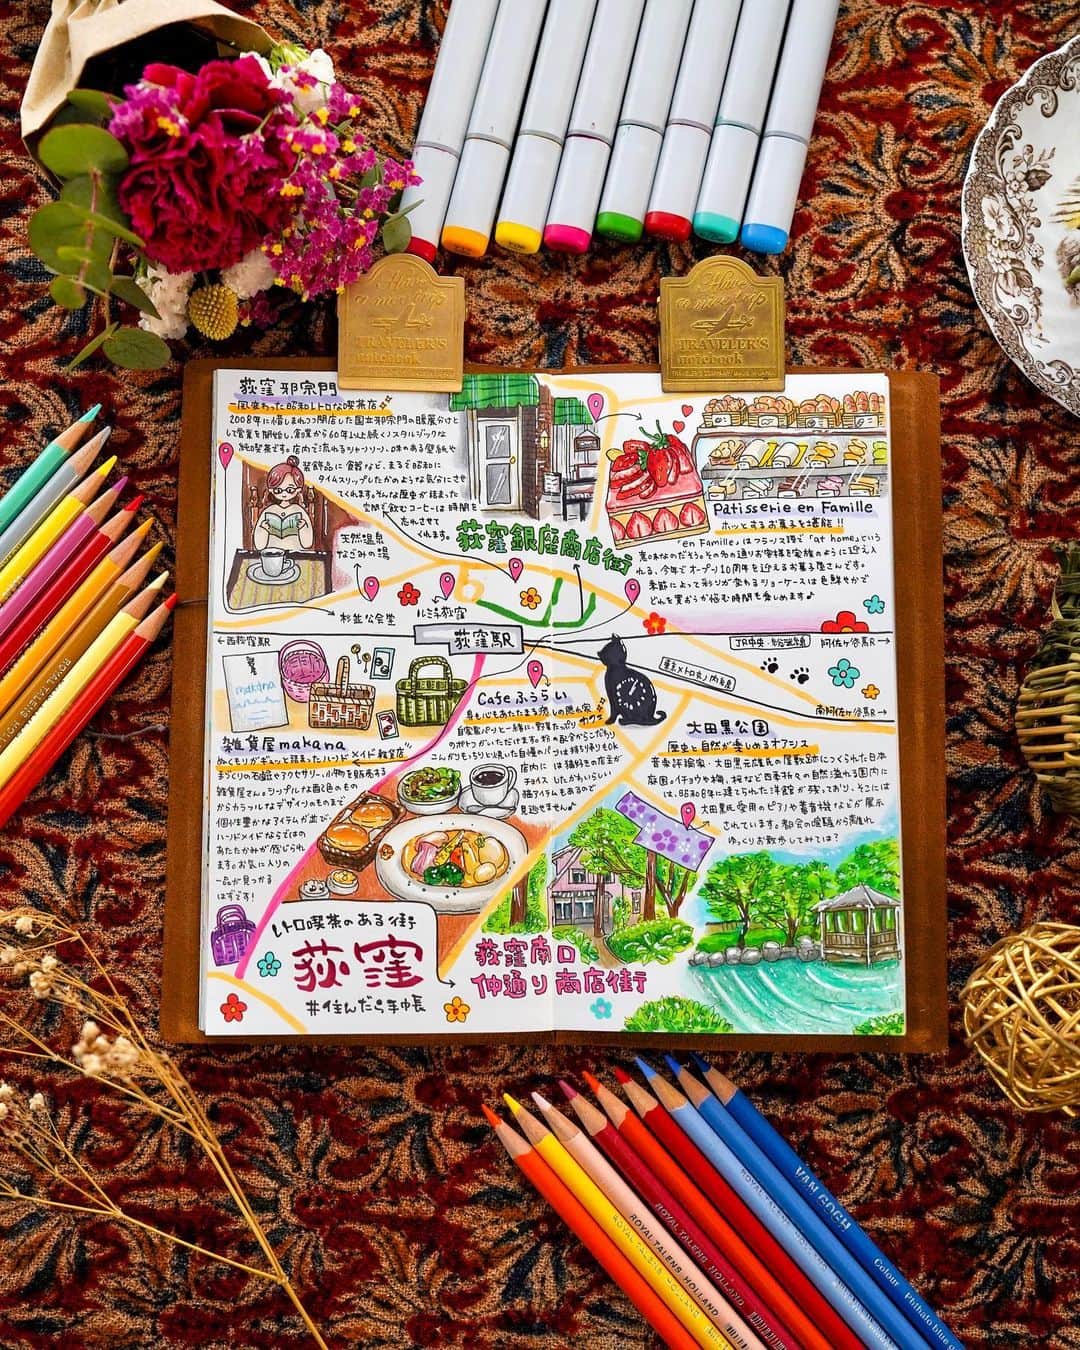 Have
a nice trip
TRAVELER'S
notebook
Have
a nice trip
TRAVELER'S
notebook
TRAVELER'S COMPANY MADE IN JAPAN
荻窪 邪宗門
風変わった昭和レトロな喫茶店
2008年に惜しまれつつ閉店した国立邪宗門の暖簾分けと
して営業を開始し、創業から60年以上続くノスタルジックな
純喫茶です。店内で流れるシャンソン、味のある壁紙や
装飾品に食器など、まるで昭和に
タイムスリップしたかのような気分にさせ
てくれます。そんな歴史が詰まった
空間で飲むコーヒーは時間を
忘れさせて
くれます。
荻窪銀座商店街
天然温泉
なごみの湯
杉並公会堂
ルミネ荻窪
Patisserie en Famille
ホッとするお菓子を堪能!!
「en Famille」はフランス語で「at home」という
意味なのだそう。その名の通りお客様を家族のように迎え入
れる、今年でオープン10周年を迎えるお菓子屋さんです。
季節によって彩りが変わるショーケースは色鮮やかで
どれを買おうか悩む時間も楽しめます♪
←西荻窪駅
荻窪駅
JR中央・総武線
阿佐ヶ谷駅→
東京メトロ丸ノ内線
南阿佐ヶ谷駅→
makana
雑貨屋makana
ぬくもりがギュッと詰まったハンドメイド雑貨店
手づくりの石鹸やアクセサリー、小物を販売する
雑貨屋さん。シンプルな配色のもの
からカラフルなデザインのものまで
個性豊かなアイテムが並び、
ハンドメイドならではの
あたたかみが感じられ
ます。お気に入りの
一品が見つかる
はずです!
Cafe ふうらい
身も心もあたたまる癒しの隠れ家カフェ
自家製パンと一緒に、野菜たっぷり
のポトフがいただけます。粉の配合からこだわり
こんがりもっちりと焼いた自慢のパンは持ち帰りもOK
店内には猫好きの店主が
チョイスしたかわいらしい
猫アイテムもあるので
見逃せません♪
大田黒公園
歴史と自然が楽しめるオアシス
音楽評論家・大田黒元雄氏の屋敷跡につくられた日本
庭園。イチョウや梅、桜など四季折々の自然溢れる園内に
は、昭和8年に建てられた洋館が残っており、そこには
大田黒氏愛用のピアノや蓄音機などが展示
されています。都会の喧騒から離れ
ゆっくりお散歩してみては?
レトロ喫茶のある街
荻窪
#住んだら手帳
荻窪南口
仲通り商店街
ROYAL TALENS
ROYAL TALENS HOLLAND
ROYAL TALENS HOLLAND
ROYAL TALENS
VAN GOGH
Colour Phthalo blue